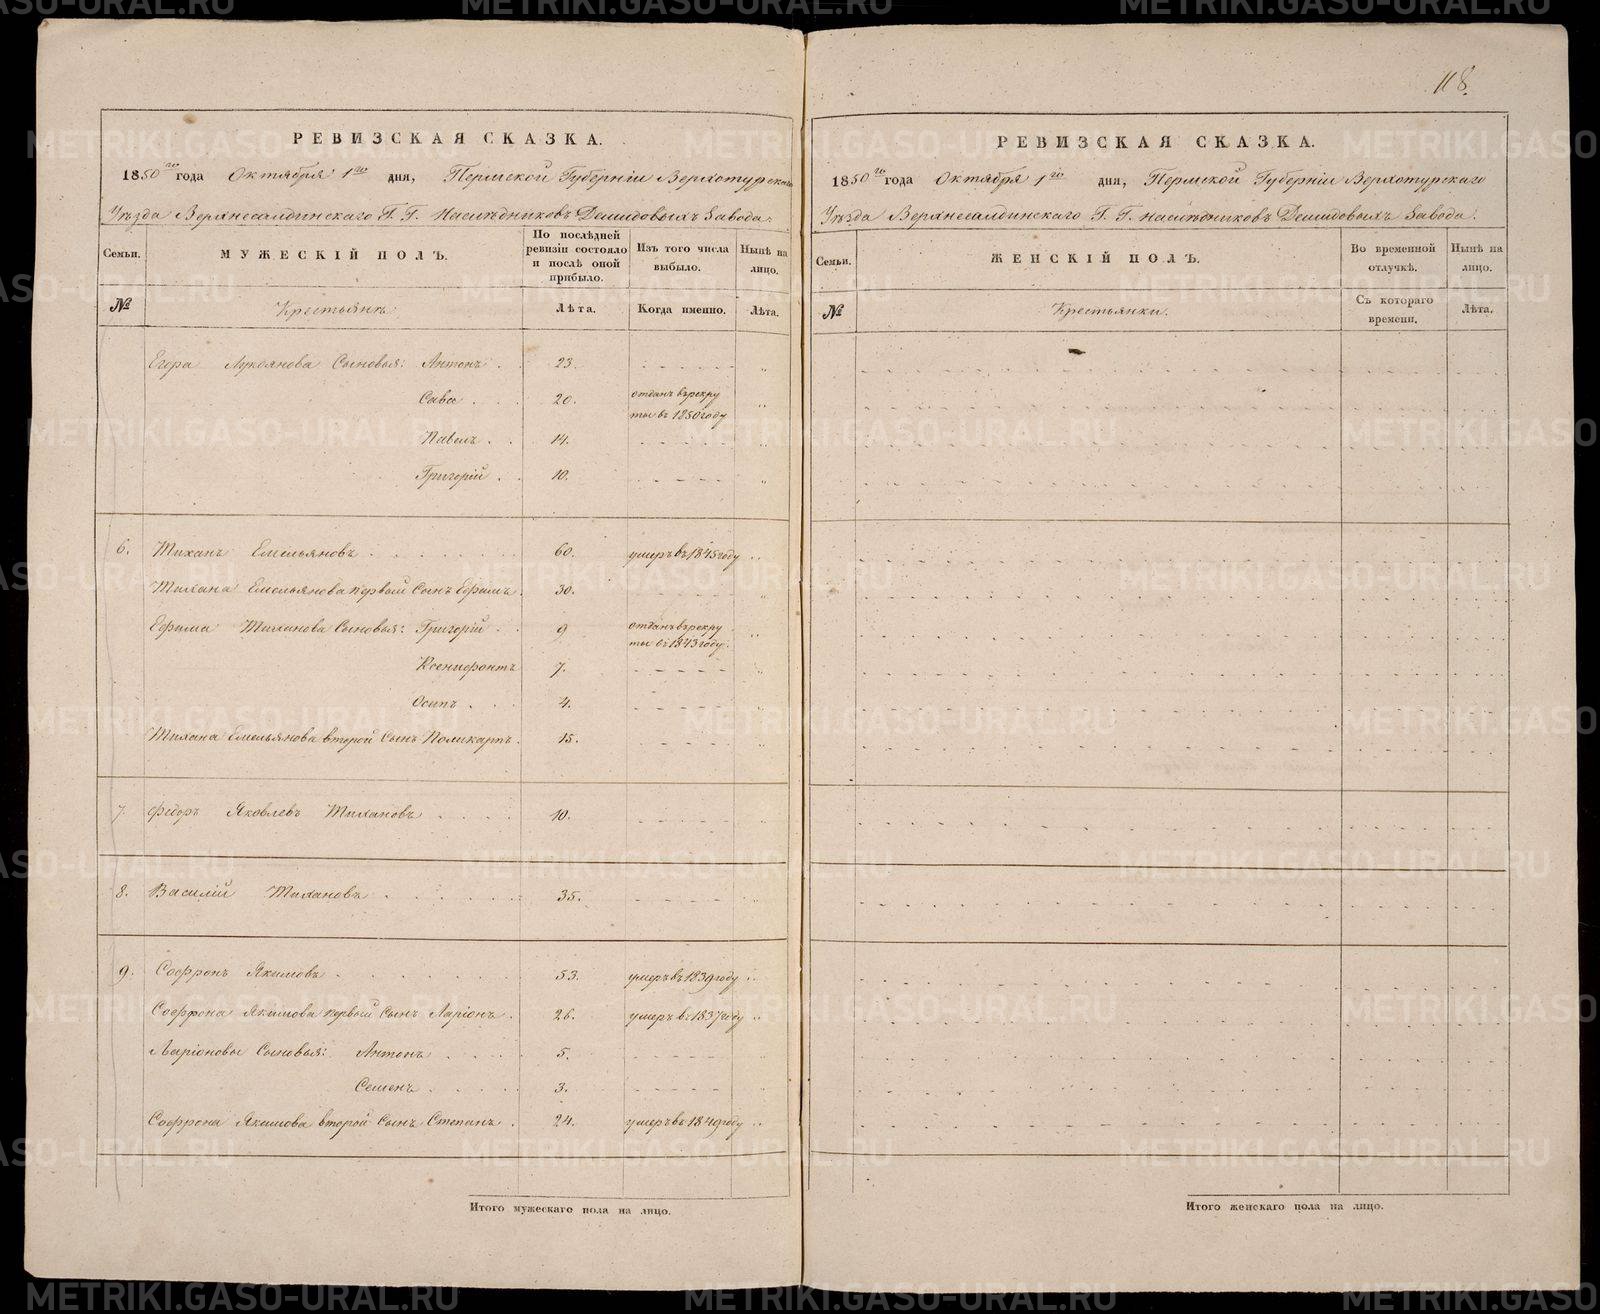 118.
РЕВИЗСКАЯ СКАЗКА.
1850го года Октября 1го дня, Пермской Губерніи Верхотурскаго
Уѣзда Верхнесалдинскаго Г. Г. Наслѣдниковъ Демидовыхъ Завода.
Семьи.
МУЖЕСКІЙ ПОЛЪ.
По послѣдней ревизіи состояло и послѣ оной прибыло.
Изъ того числа выбыло.
Нынѣ на лицо.
№
Крестьянъ
Лѣта.
Когда именно.
Лѣта.
Егора Лукоянова Сыновья: Антонъ . 23.
Сава . . . 20. отданъ в рекру
ты въ 1850 году
Павелъ . . 14.
Григорій . . 10.
6. Тиханъ Емельяновъ . . . . . . . 60. умеръ въ 1845 году
Тихана Емельянова первый Сынъ Ефимъ. 30.
Ефима Тиханова Сыновья: Григорій . . 9 отданъ в рекру
ты въ 1843 году.
Ксенифонтъ 7.
Осипъ . . . 4.
Тихана Емельянова второй Сынъ Поликарпъ. 15.
7. Федоръ Яковлевъ Тихановъ . . . . 10.
8. Василій Тихановъ . . . . . . 35.
9. Софронъ Якимовъ . . . . . . . 53. умеръ въ 1839 году
Софрона Якимова первый Сынъ Ларіонъ . 26. умеръ въ 1837 году
Ларіоновы Сыновья: Антонъ . . . . 5.
Семенъ . . . . 3.
Софрона Якимова второй Сынъ Степанъ . 24. умеръ въ 1849 году
Итого мужескаго пола на лицо.
РЕВИЗСКАЯ СКАЗКА.
1850го года Октября 1го дня, Пермской Губерніи Верхотурскаго
Уѣзда Верхнесалдинскаго Г. Г. наслѣдниковъ Демидовыхъ Завода.
Семьи.
ЖЕНСКІЙ ПОЛЪ.
Во временной отлучкѣ.
Нынѣ на лицо.
№
Крестьянки.
Съ котораго времени.
Лѣта.
Итого женскаго пола на лицо.
METRIKI.GASO-URAL.RU